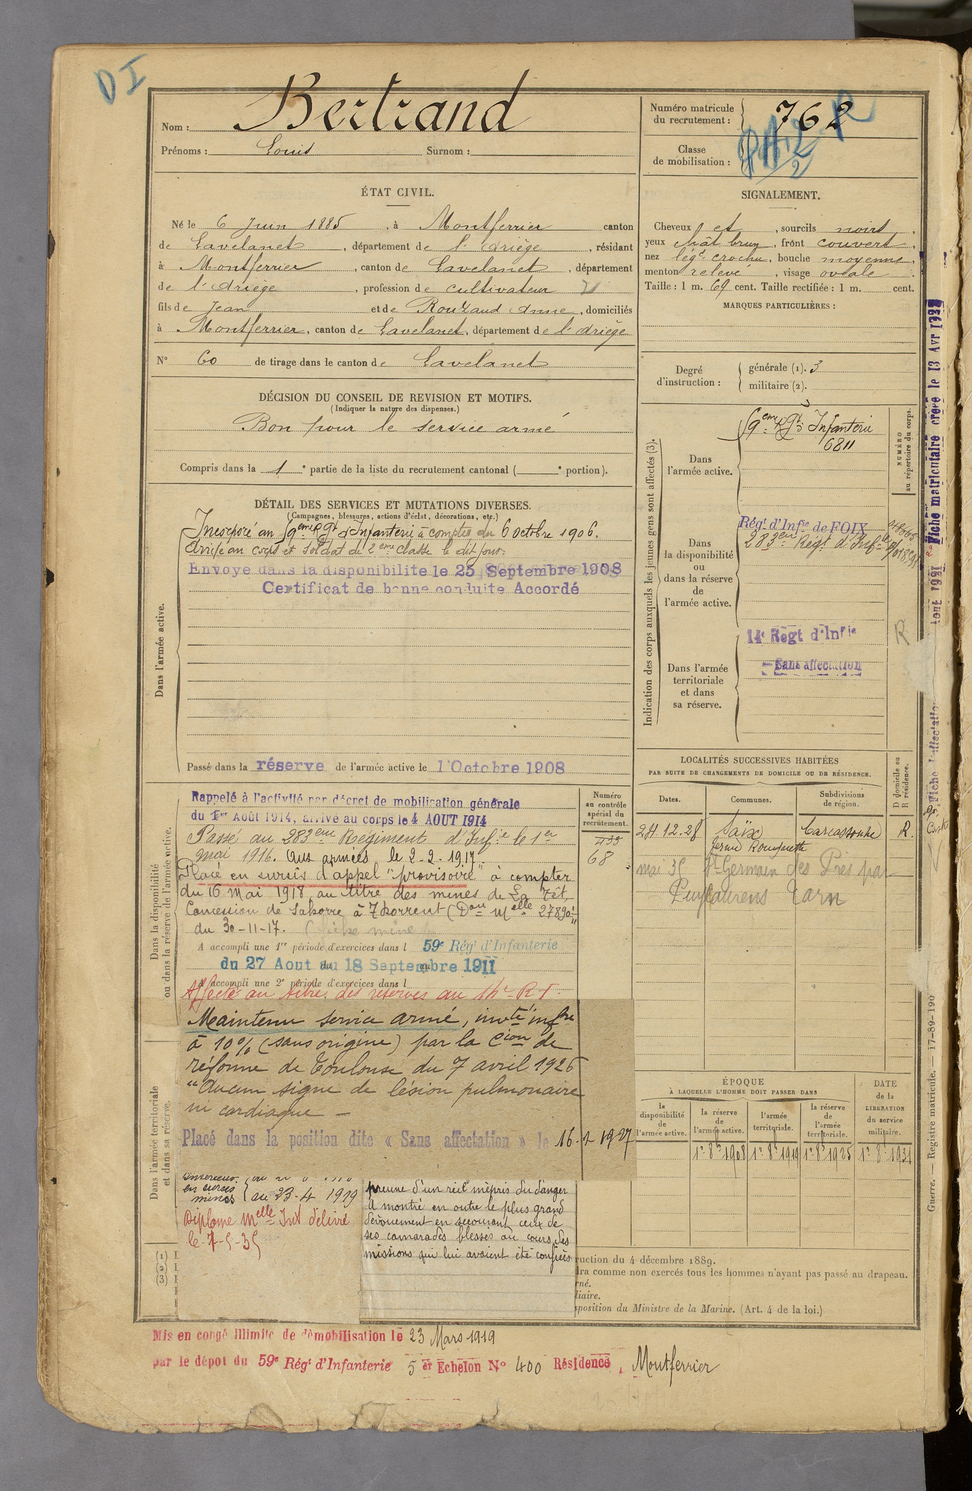 DI
Nom : Bertrand
Prénoms : Louis Surnom :
Numéro matricule du recrutement : 762
Classe de mobilisation :
ÉTAT CIVIL.
Né le 6 Juin 1885, à Montferrier canton
de Lavelanet, département de l'Ariège, résidant
à Montferrier, canton de Lavelanet, département
de l'Ariège, profession de cultivateur
fils de Jean et de Rouzaud Anne, domiciliés
à Montferrier, canton de Lavelanet, département de l'Ariège
N° 60 de tirage dans le canton de Lavelanet
SIGNALEMENT.
Cheveux et, sourcils noirs,
yeux chât brun, front couvert,
nez lég. crochu, bouche moyenne,
menton relevé, visage ovale.
Taille : 1 m. 69 cent. Taille rectifiée : 1 m. cent.
MARQUES PARTICULIÈRES :
Degré d'instruction :
générale (1). 3
militaire (2).
DÉCISION DU CONSEIL DE REVISION ET MOTIFS.
(Indiquer la nature des dispenses.)
Bon pour le service armé
Compris dans la 1e partie de la liste du recrutement cantonal ( e portion).
DÉTAIL DES SERVICES ET MUTATIONS DIVERSES.
(Campagnes, blessures, actions d'éclat, décorations, etc.)
Incorporé au 59eme Rgt d'Infanterie à compter du 6 octobre 1906.
Arrivé au corps et soldat de 2eme classe le dit jour.
Envoyé dans la disponibilité le 25 Septembre 1908
Certificat de bonne conduite Accordé
Dans l'armée active.
Passé dans la réserve de l'armée active le 1 Octobre 1908
Indication des corps auxquels les jeunes gens sont affectés (3).
NUMÉRO au répertoire du corps.
Dans l'armée active.
59eme Rgt Infanterie
6811
Dans la disponibilité ou dans la réserve de l'armée active.
Régt d'Infie de FOIX
283eme Régt d'Infie
Dans l'armée territoriale et dans sa réserve.
14e Regt d'Infie
Sans affectation
R
Dans la disponibilité ou dans la réserve de l'armée active.
Rappelé à l'activité par décret de mobilisation générale
du 1er Août 1914, arrivé au corps le 4 AOUT 1914
Passé au 283eme Régiment d'Infie le 1er
mai 1916. Aux armées, le 2-2-1917.
Placé en sursis d'appel "provisoire" à compter
du 16 Mai 1918 au titre des mines de La Têt,
Concession de Sahorre à Thorrent (Don Melle 27890
du 30-11-17.
A accompli une 1re période d'exercices dans l 59e Régt d'Infanterie
du 27 Aout au 18 Septembre 1911
A accompli une 2e période d'exercices dans l
Affecté au titre des réserves au 14e R.I.
Maintenu service armé, invté infre
à 10% (sans origine) par la Cion de
réforme de Toulouse du 7 avril 1926
"Aucun signe de lésion pulmonaire
ni cardiaque -
Placé dans la position dite « Sans affectation » le 16-1-1927
Numéro au contrôle spécial du recrutement.
68
LOCALITÉS SUCCESSIVES HABITÉES
PAR SUITE DE CHANGEMENTS DE DOMICILE OU DE RÉSIDENCE.
Dates. Communes. Subdivisions de région. D domicile ou R résidence.
24.12.28 Saïx Carcassonne R.
mai 35 St Germain des Prés par
Puylaurens Tarn
ÉPOQUE
À LAQUELLE L'HOMME DOIT PASSER DANS
DATE de la LIBÉRATION du service militaire.
la disponibilité de l'armée active.
la réserve de l'armée active.
l'armée territoriale.
la réserve de l'armée territoriale.
1er 8bre 1908 1er 8bre 1919 1er 8bre 1925 1er 8bre 1931
Dans l'armée territoriale et dans sa réserve.
en sursis
mines
au 23-4 1919
Diplome Melle Int délivré
le 7-5-35
preuve d'un réel mépris du danger
A montré en outre le plus grand
dévouement en secourant ceux de
ses camarades blessés au cours des
missions qui lui avaient été confiées
(1)
(2)
(3)
ruction du 4 décembre 1889.
dra comme non exercés tous les hommes n'ayant pas passé au drapeau.
rné.
liaire.
sposition du Ministre de la Marine. (Art. 4 de la loi.)
Mis en congé illimité de démobilisation le 23 Mars 1919
par le dépôt du 59e Régt d'Infanterie 5 er Echelon N° 400 Résidence, Montferrier
Fiche matriculaire créée le 13 Avr 1928
Guerre. — Registre matricule. — 17-89-190